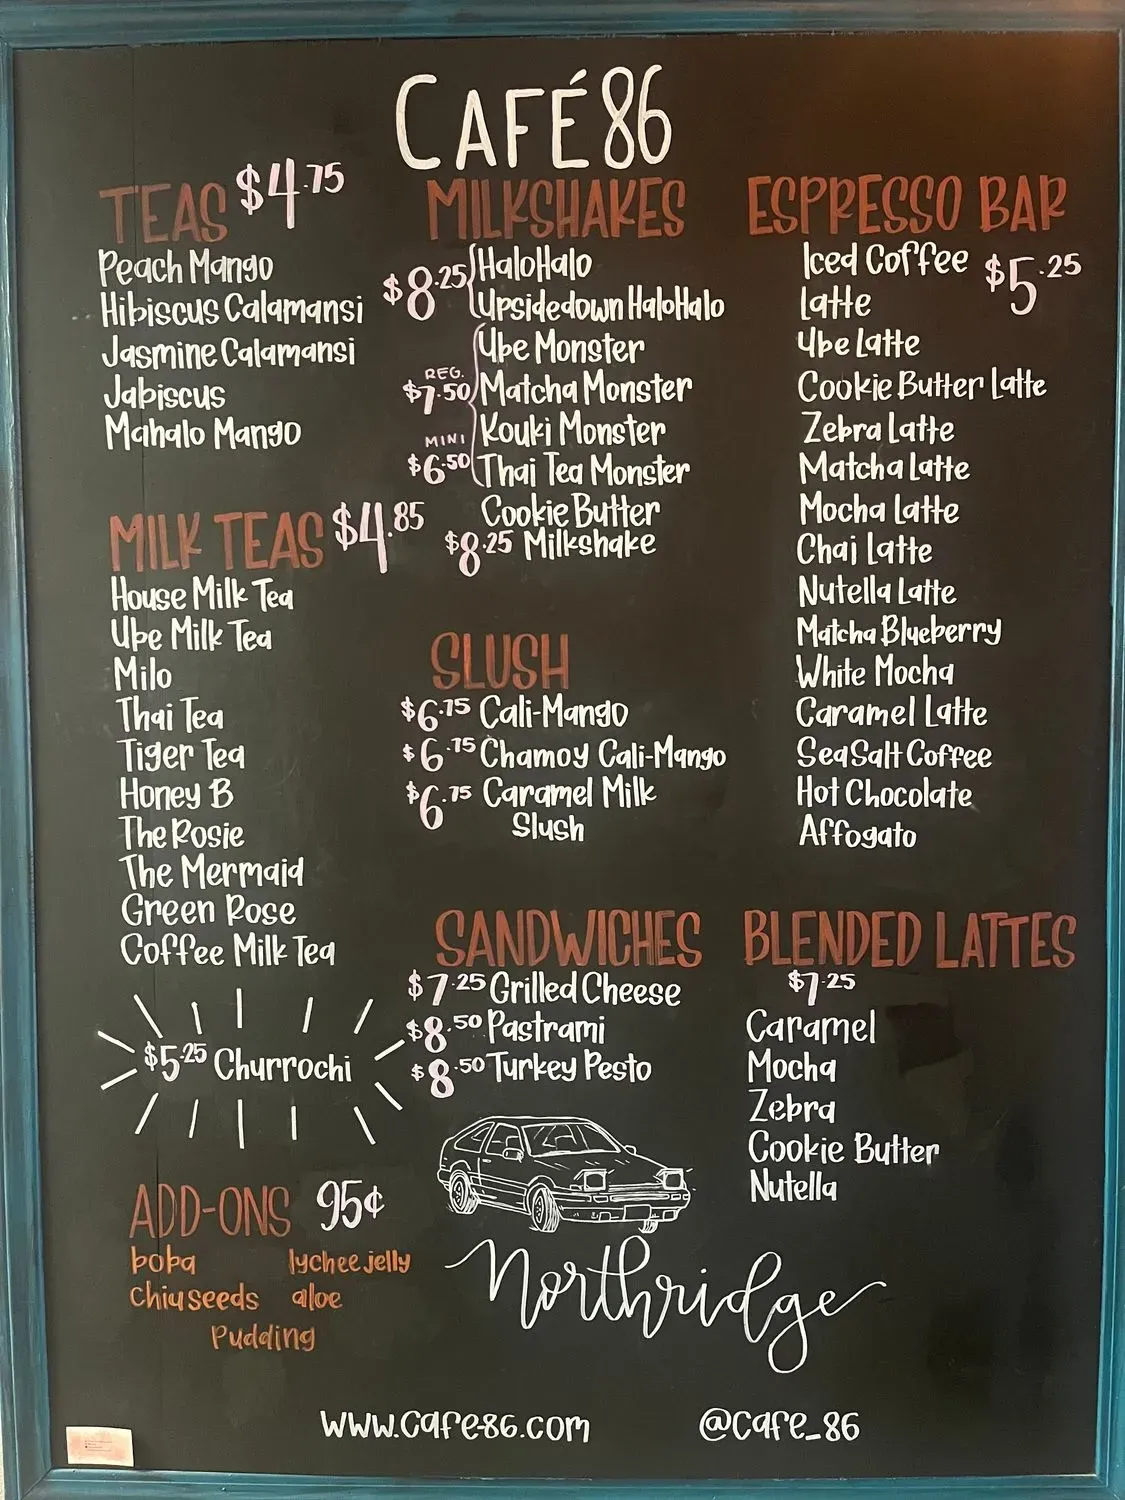 CAFÉ 86
TEAS $4.75
Peach Mango
Hibiscus Calamansi
Jasmine Calamansi
Jabiscus
Mahalo Mango
MILK TEAS $4.85
House Milk Tea
Ube Milk Tea
Milo
Thai Tea
Tiger Tea
Honey B
The Rosie
The Mermaid
Green Rose
Coffee Milk Tea
$5.25 Churrochi
ADD-ONS 95¢
boba lychee jelly
Chiaseeds aloe
Pudding
MILKSHAKES
$8.25 HaloHalo
Upsidedown HaloHalo
Ube Monster
REG.
$7.50 Matcha Monster
MINI Kouki Monster
$6.50 Thai Tea Monster
Cookie Butter
$8.25 Milkshake
SLUSH
$6.75 Cali-Mango
$6.75 Chamoy Cali-Mango
$6.75 Caramel Milk
Slush
SANDWICHES
$7.25 Grilled Cheese
$8.50 Pastrami
$8.50 Turkey Pesto
ESPRESSO BAR
Iced Coffee $5.25
Latte
Ube Latte
Cookie Butter Latte
Zebra Latte
Matcha Latte
Mocha Latte
Chai Latte
Nutella Latte
Matcha Blueberry
White Mocha
Caramel Latte
SeaSalt Coffee
Hot Chocolate
Affogato
BLENDED LATTES
$7.25
Caramel
Mocha
Zebra
Cookie Butter
Nutella
Northridge
www.cafe-86.com @cafe_86